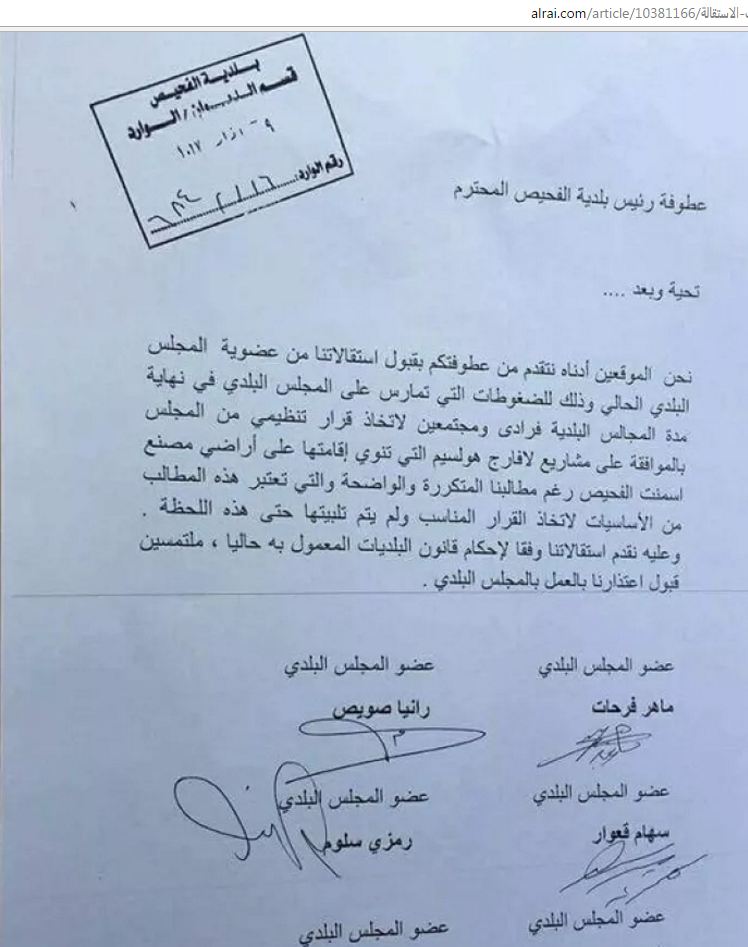 alrai.com/article/10381166/الاستقالة-
بلدية الفحيص
قسم الديوان / الوارد
٩ - اذار ٢٠١٧
رقم الوارد:
عطوفة رئيس بلدية الفحيص المحترم
تحية وبعد ....
نحن الموقعين أدناه نتقدم من عطوفتكم بقبول استقالاتنا من عضوية المجلس
البلدي الحالي وذلك للضغوطات التي تمارس على المجلس البلدي في نهاية
مدة المجالس البلدية فرادى ومجتمعين لاتخاذ قرار تنظيمي من المجلس
بالموافقة على مشاريع لافارج هولسيم التي تنوي إقامتها على أراضي مصنع
اسمنت الفحيص رغم مطالبنا المتكررة والواضحة والتي تعتبر هذه المطالب
من الأساسيات لاتخاذ القرار المناسب ولم يتم تلبيتها حتى هذه اللحظة .
وعليه نقدم استقالاتنا وفقا لإحكام قانون البلديات المعمول به حاليا ، ملتمسين
قبول اعتذارنا بالعمل بالمجلس البلدي .
عضو المجلس البلدي عضو المجلس البلدي
ماهر فرحات رانيا صويص
عضو المجلس البلدي عضو المجلس البلدي
سهام قعوار رمزي سلوم
عضو المجلس البلدي عضو المجلس البلدي